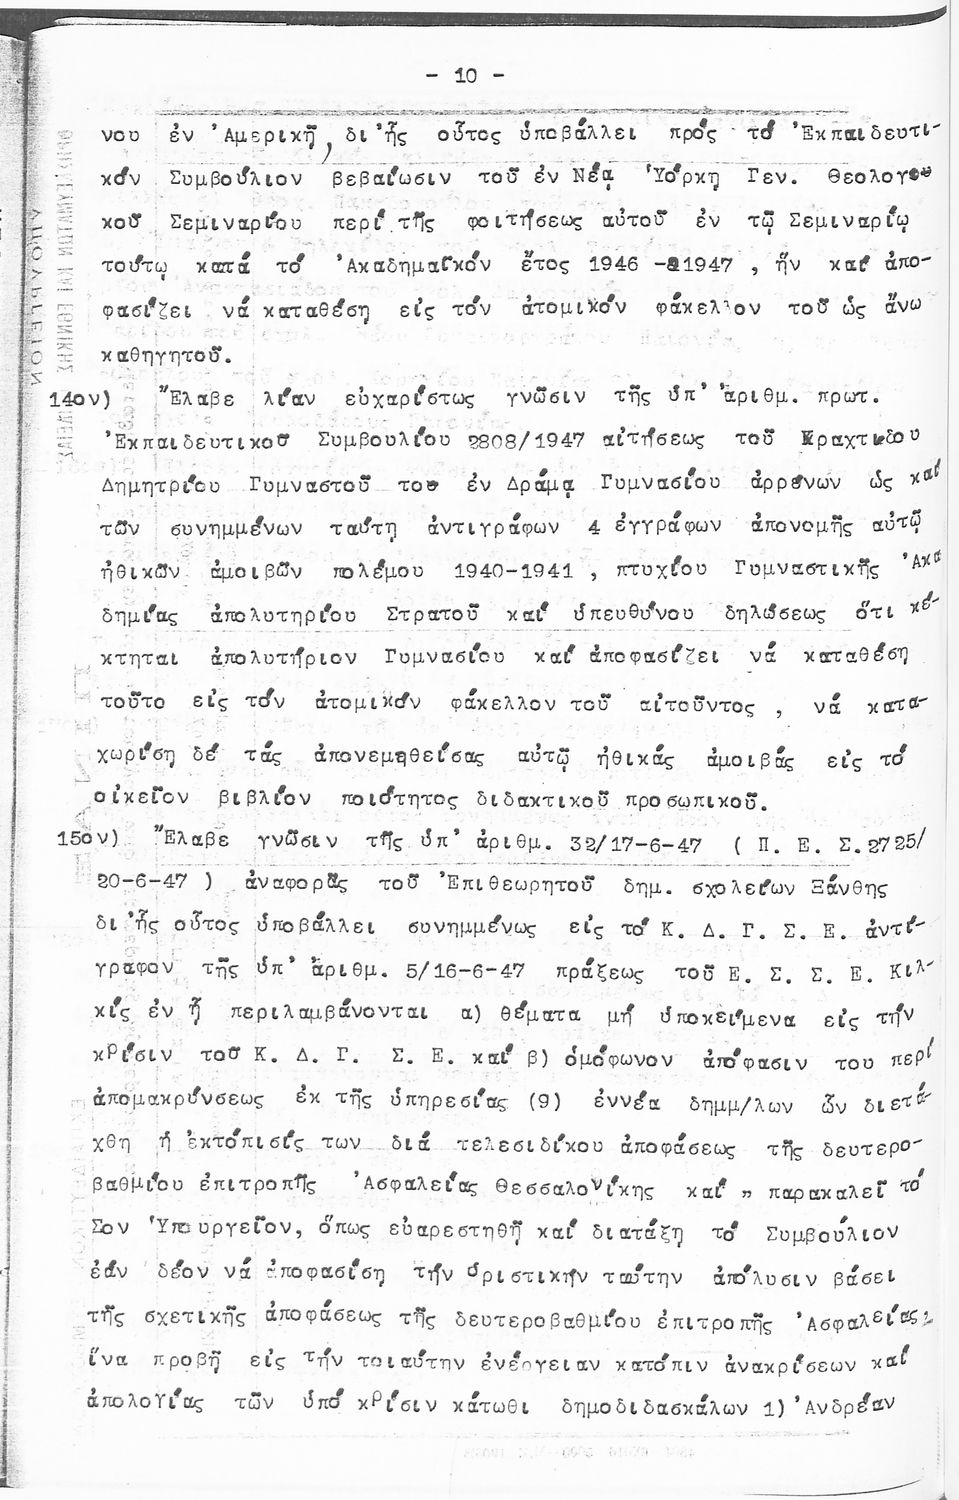 - 10 -
νου ἐν 'Αμερικῇ, δι'ἧς οὗτος ὑποβάλλει πρός τό 'Εκπαιδευτι-
κόν Συμβούλιον βεβαίωσιν τοῦ ἐν Νέᾳ 'Υόρκη Γεν. Θεολογι
κοῦ Σεμιναρίου περί τῆς φοιτήσεως αὐτοῦ ἐν τῷ Σεμιναρίῳ
τούτῳ κατά τό 'Ακαδημαϊκόν ἔτος 1946 -1947 , ἥν καί ἀπο-
φασίζει νά καταθέσῃ εἰς τόν ἀτομικόν φάκελλον τοῦ ὡς ἄνω
καθηγητοῦ.
14ον) "Ελαβε λίαν εὐχαρίστως γνῶσιν τῆς ὑπ' ἀριθμ. πρωτ.
'Εκπαιδευτικοῦ Συμβουλίου 2808/1947 αἰτήσεως τοῦ Κραχτίδου
Δημητρίου Γυμναστοῦ του ἐν Δράμᾳ Γυμνασίου ἀρρένων ὡς καί
τῶν συνημμένων ταύτῃ ἀντιγράφων 4 ἐγγράφων ἀπονομῆς αὐτῷ
ἠθικῶν ἀμοιβῶν πολέμου 1940-1941 , πτυχίου Γυμναστικῆς 'Ακα
δημίας ἀπολυτηρίου Στρατοῦ καί ὑπευθύνου δηλώσεως ὅτι κέ-
κτηται ἀπολυτήριον Γυμνασίου καί ἀποφασίζει νά καταθέσῃ
τοῦτο εἰς τόν ἀτομικόν φάκελλον τοῦ αἰτοῦντος , νά κατα-
χωρίσῃ δέ τάς ἀπονεμηθείσας αὐτῷ ἠθικάς ἀμοιβάς εἰς τό
οἰκεῖον βιβλίον ποιότητος διδακτικοῦ προσωπικοῦ.
15ον) "Ελαβε γνῶσιν τῆς ὑπ' ἀριθμ. 32/17-6-47 ( Π. Ε. Σ.2725/
20-6-47 ) ἀναφορᾶς τοῦ 'Επιθεωρητοῦ δημ. σχολείων Ξάνθης
δι'ἧς οὗτος ὑποβάλλει συνημμένως εἰς τό Κ. Δ. Γ. Σ. Ε. ἀντί-
γραφον τῆς ὑπ' ἀριθμ. 5/16-6-47 πράξεως τοῦ Ε. Σ. Σ. Ε. Κιλ-
κίς ἐν ᾗ περιλαμβάνονται α) θέματα μή ὑποκείμενα εἰς τήν
κρίσιν τοῦ Κ. Δ. Γ. Σ. Ε. καί β) ὁμόφωνον ἀπόφασιν του περί
ἀπομακρύνσεως ἐκ τῆς ὑπηρεσίας (9) ἐννέα δημμ/λων ὧν διετά-
χθη ἡ ἐκτόπισίς των διά τελεσιδίκου ἀποφάσεως τῆς δευτερο-
βαθμίου ἐπιτροπῆς 'Ασφαλείας Θεσσαλονίκης καί " παρακαλεῖ τό
Σον 'Υπουργεῖον, ὅπως εὐαρεστηθῇ καί διατάξῃ τό Συμβούλιον
ἐάν δέον νά ἀποφασίσῃ τήν ὁριστικήν ταύτην ἀπόλυσιν βάσει
τῆς σχετικῆς ἀποφάσεως τῆς δευτεροβαθμίου ἐπιτροπῆς 'Ασφαλείας,
ἵνα προβῇ εἰς τήν τοιαύτην ἐνέργειαν κατόπιν ἀνακρίσεων καί
ἀπολογίας τῶν ὑπό κρίσιν κάτωθι δημοδιδασκάλων 1) 'Ανδρέαν